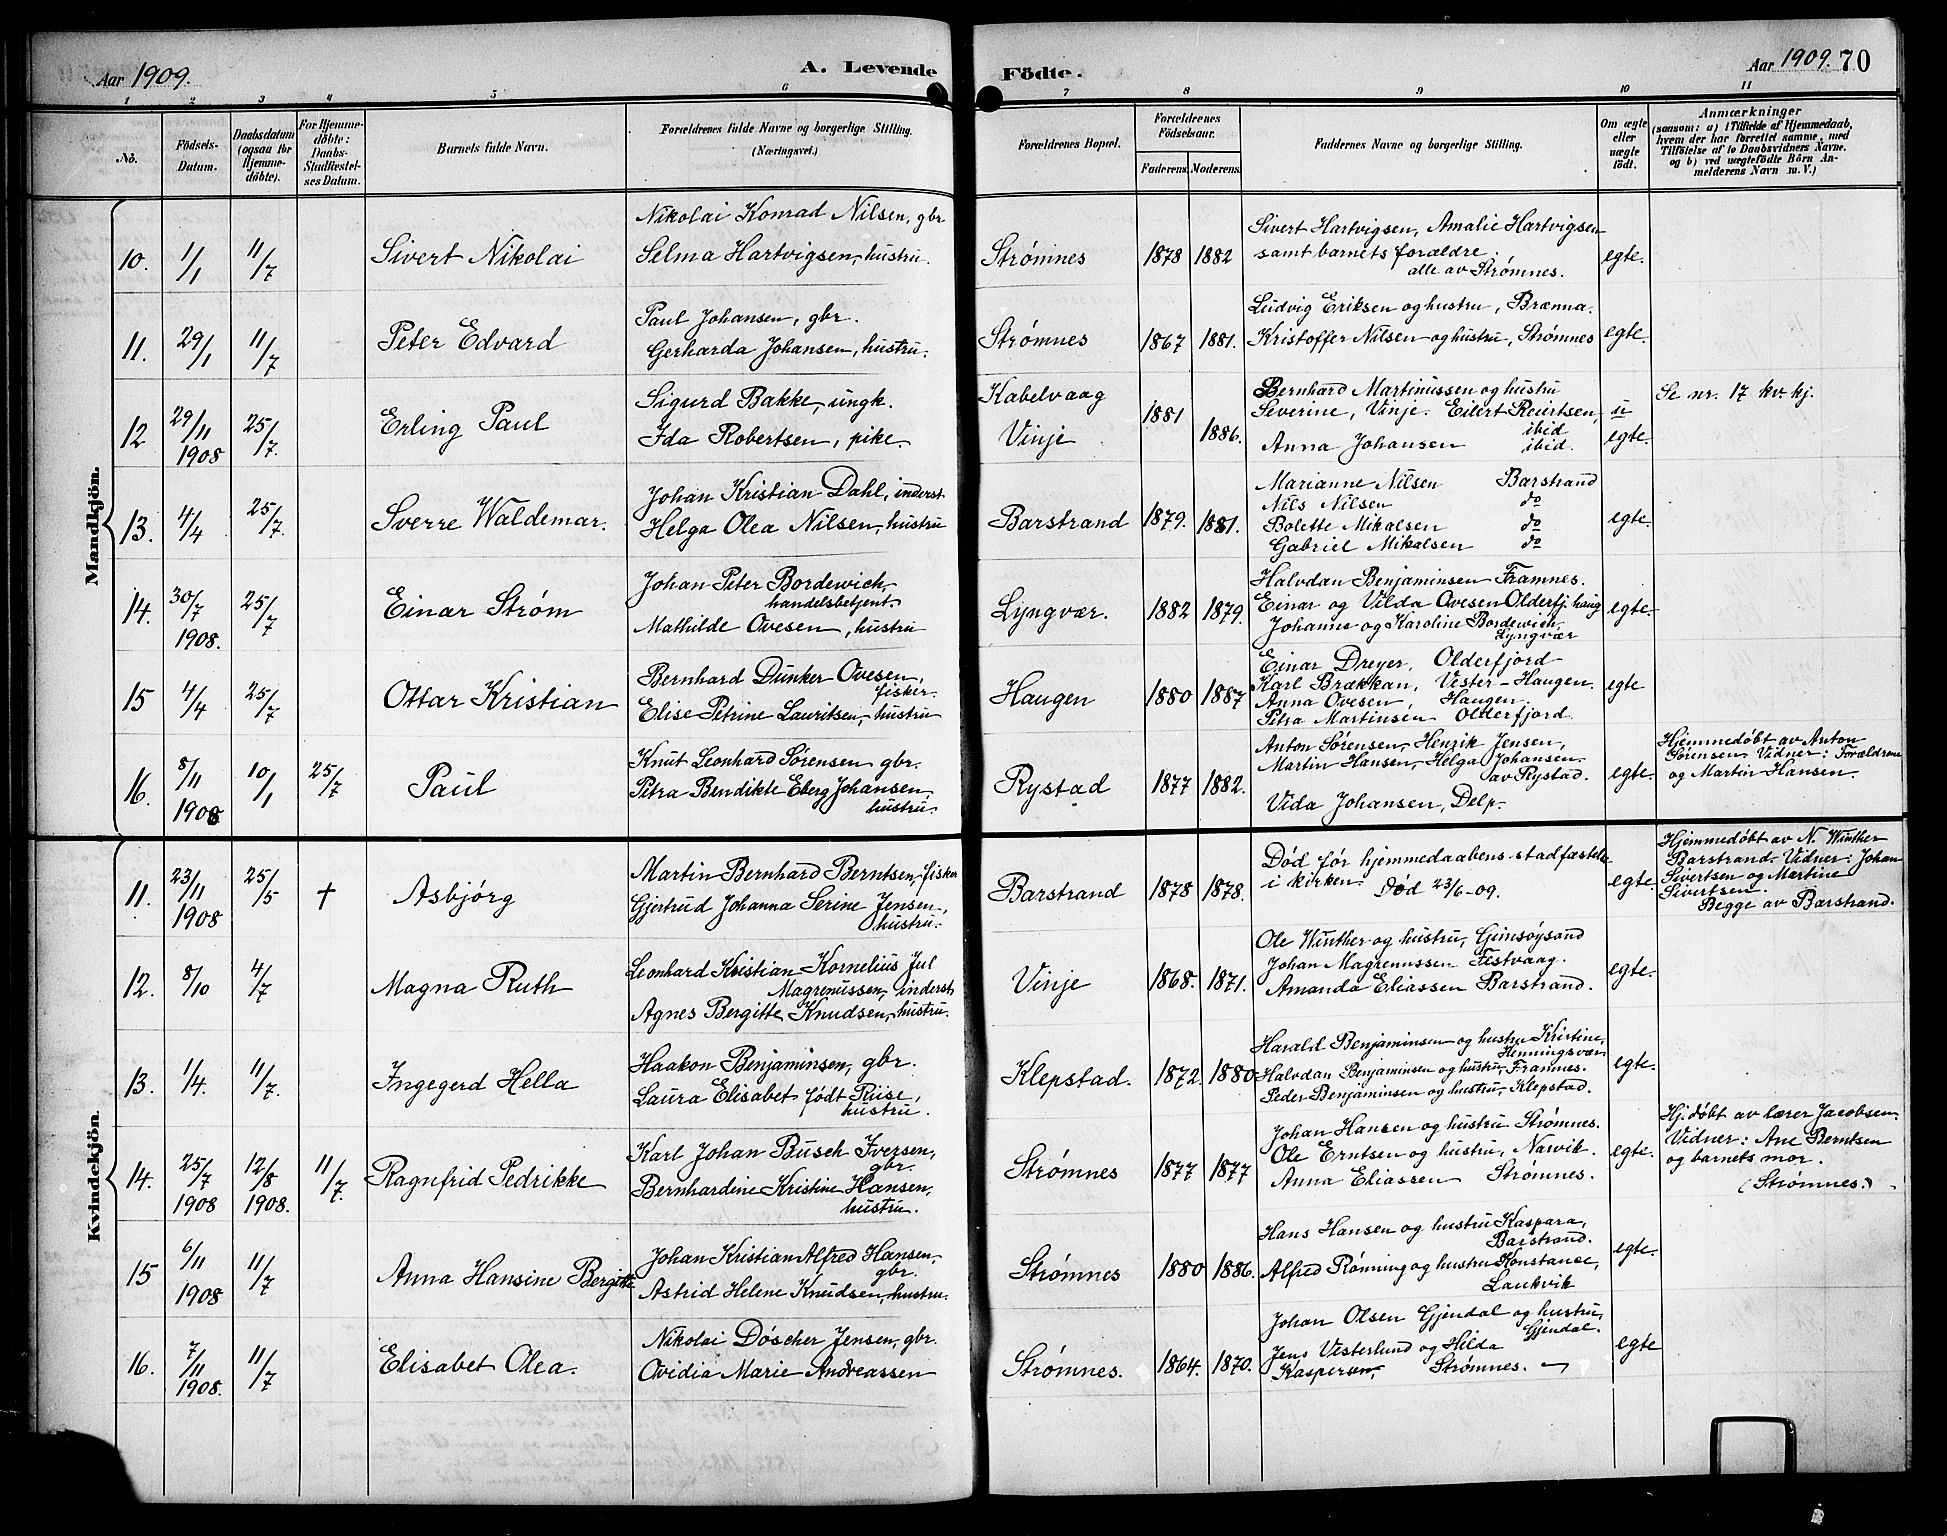 Aar 1909.
A. Levende Födte.
Aar 1909. 70
1 2 3 4 5 6 7 8 9 10 11
No.
Födsels-Datum.
Daabsdatum (ogsaa for Hjemme-döbte).
For Hjemme-döbte: Daabs-Stadfæstel-ses Datum.
Barnets fulde Navn.
Forældrenes fulde Navne og borgerlige Stilling.
(Næringsvei.)
Forældrenes Bopæl.
Forældrenes Födselsaar.
Faderens. Moderens.
Faddernes Navne og borgerlige Stilling.
Om ægte eller uægte födt.
Anmærkninger
(saasom: a) i Tilfælde af Hjemmedaab,
hvem der har forrettet samme, med
Tilföielse af to Daabsvidners Navne.
og b) ved uægtefödte Börn An-
melderens Navn m. V.)
Mandkjön.
10. 1/1 11/7 Sivert Nikolai
Nikolai Konrad Nilsen, gbr
Selma Hartvigsen, hustru.
Strømnes 1878 1882
Sivert Hartvigsen, Amalie Hartvigsen
samt barnets forældre.
alle av Strømnes.
egte.
11. 29/1 11/7 Peter Edvard
Paul Johansen, gbr.
Gerharda Johansen, hustru.
Strømnes 1867 1881.
Ludvig Eriksen og hustru, Brænna.
Kristoffer Nilsen og hustru, Strømnes
egte.
12 29/11 1908 25/7. Erling Paul
Sigurd Bakke, ungk.
Ida Robertsen, pike.
Kabelvaag
Vinje
1881 1886.
Bernhard Martinussen og hustru
Severine, Vinje. Eilert Reiertsen,
ibid
Anna Johansen ibid.
u
egte.
Se nr. 17 kv. kj.
13. 4/4 25/7. Sverre Waldemar.
Johan Kristian Dahl, inderst.
Helga Olea Nilsen, hustru
Barstrand 1879. 1881.
Marianne Nilsen Barstrand
Nils Nilsen do
Bolette Mikalsen do
Gabriel Mikalsen do
egte.
14. 30/7 1908. 25/7 Einar Strøm
Johan Peter Bordewich,
handelsbetjent.
Mathilde Ovesen, hustru
Lyngvær. 1882 1879.
Halvdan Benjaminsen Framnes.
Einar og Vilda Ovesen Olderfj. haug
Johanne og Karoline Bordewich,
Lyngvær
egte.
15 4/4 25/7 Ottar Kristian
Bernhard Dunker Ovesen,
fisker.
Elise Petrine Lauritsen, hustru
Haugen 1880 1887
Einar Dreyer, Olderfjord
Karl Brækkan, Vester-Haugen.
Anna Ovesen, Haugen.
Petra Martinsen Olderfjord.
egte
16. 8/11 1908 10/1 25/7 Paul
Knut Leonhard Sørensen gbr.
Petra Bendikte Eberg Johansen,
hustru.
Rystad 1877 1882.
Anton Sørensen, Henrik Jensen,
Martin Hansen, Helga Johansen.
av Rystad.
Vida Johansen, Delp.
egte.
Hjemmedøbt av Anton
Sørensen Vidner: Forældrene
og Martin Hansen.
Kvindekjön.
11. 23/11 1908 25/5 † Asbjórg
Martin Bernhard Berntsen, fisker
Gjertrud Johanna Serine Jensen,
hustru.
Barstrand 1878 1878.
Død før hjemmedaabens stadfæstelse
i kirken. Død 23/6-09.
egte.
Hjemmedøbt av N. Winther
Barstrand. Vidner: Johan
Sivertsen og Martine
Sivertsen.
Begge av Barstrand.
12. 8/10 4/7 Magna Ruth
Leonhard Kristian Kornelius Jul
Magrenussen, inderst
Agnes Bergitte Knudsen, hustru.
Vinje 1868. 1871.
Ole Winther og hustru, Gimsøysand
Johan Magrenussen Festvaag.
Amanda Eliassen Barstrand.
egte.
13. 1/4. 11/7. Ingegerd Hella
Haakon Benjaminsen, gbr.
Laura Elisabet født Riise,
hustru.
Klepstad. 1872. 1880
Harald Benjaminsen og hustru Kristine,
Henningsvær
Halvdan Benjaminsen og hustru, Framnes.
Peder Benjaminsen og hustru, Klepstad.
egte.
14. 25/7 1908 12/8 1908. 11/7. Ragnfrid Pedrikke
Karl Johan Busch Iversen,
gbr.
Bernhardine Kristine Hansen,
hustru.
Strømnes 1877 1877
Johan Hansen og hustru Strømnes.
Ole Erntsen og hustru, Narvik.
Anna Eliassen Strømnes.
egte.
Hj. døbt av lærer Jacobsen.
Vidner: Ane Berntsen
og barnets mor.
(Strømnes.)
15 6/11 1908 11/7 Anna Hansine Bergitte
Johan Kristian Alfred Hansen,
gbr.
Astrid Helene Knudsen, hustru.
Strømnes 1880 1886.
Hans Hansen og hustru Kaspara,
Barstrand.
Alfred Rønning og hustru Konstanse,
Laukvik
egte.
16. 7/11 1908. 11/7 Elisabet Olea.
Nikolai Döscher Jensen, gbr.
Ovidia Marie Andreassen
Strømnes. 1864. 1870.
Johan Olsen Gjendal og hustru,
Gjendal.
Jens Vesterlund og Hilda
Kaspersen, Strømnes.
egte